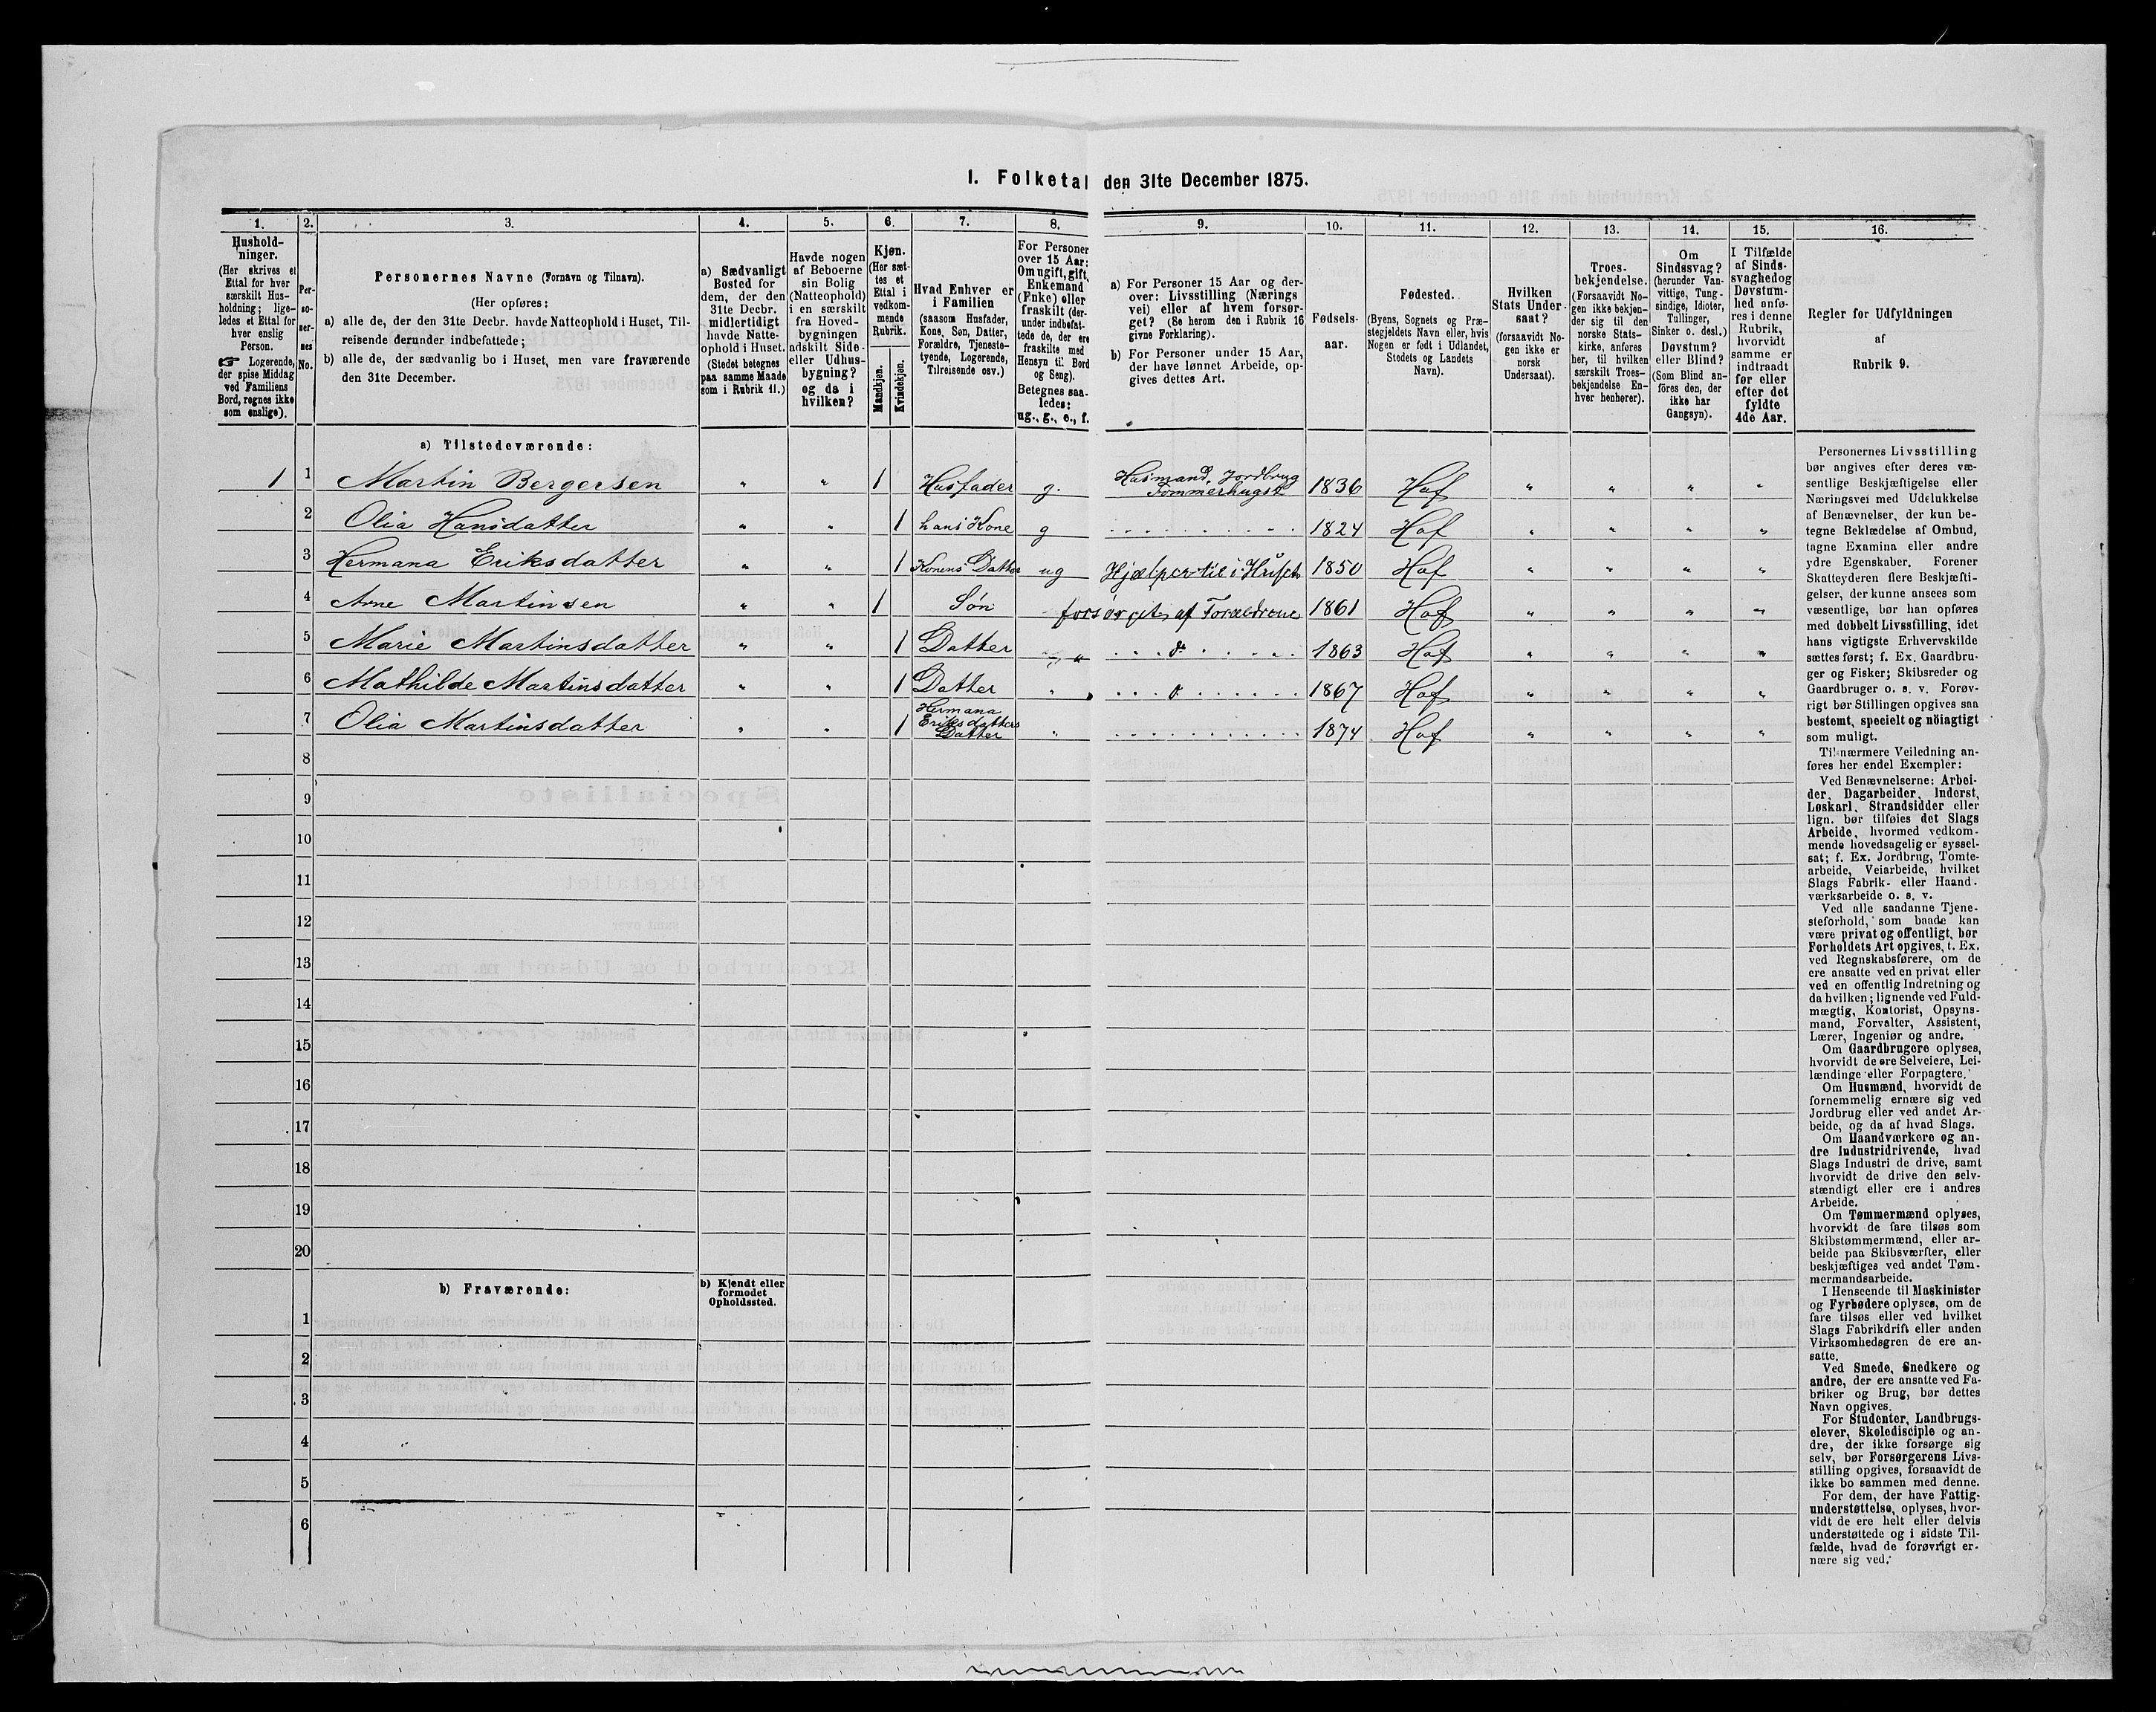 I. Folketal den 31te December 1875.
1.
2.
3.
4.
5.
6.
7.
8.
9.
10.
11.
12.
13.
14.
15.
16.
Hushold-
ninger.
(Her skrives et
Ettal for hver
særskilt Hus-
holdning; lige-
ledes et Ettal for
hver enslig
Person.
☞ Logerende,
der spise Middag
ved Familiens
Bord, regnes ikke
som enslige).
Per-
so-
ner-
nes
No.
Personernes Navne (Fornavn og Tilnavn).
(Her opføres:
a) alle de, der den 31te Decbr. havde Natteophold i Huset, Til-
reisende derunder indbefattede;
b) alle de, der sædvanlig bo i Huset, men vare fraværende
den 31te December.
a) Sædvanligt
Bosted for
dem, der den
31te Decbr.
midlertidigt
havde Natte-
ophold i Huset.
(Stedet betegnes
paa samme Maade
som i Rubrik 11.)
Havde nogen
af Beboerne
sin Bolig
(Natteophold)
i en særskilt
fra Hoved-
bygningen
adskilt Side-
eller Udhus-
bygning?
og da i
hvilken?
Kjøn.
(Her sæt-
tes et
Ettal i
vedkom-
mende
Rubrik.
Mandkjøn.
Kvindekjøn.
Hvad Enhver er
i Familien
(saasom Husfader,
Kone, Søn, Datter,
Forældre, Tjeneste-
tyende, Logerende,
Tilreisende osv.)
For Personer
over 15 Aar:
Om ugift, gift,
Enkemand
(Enke) eller
fraskilt (der-
under indbefat-
tede de, der ere
fraskilte med
Hensyn til Bord
og Seng).
Betegnes saa-
ledes:
ug., g., e., f.
a) For Personer 15 Aar og der-
over: Livsstilling (Nærings
vei) eller af hvem forsør-
get? (Se herom den i Rubrik 16
givne Forklaring).
b) For Personer under 15 Aar,
der have lønnet Arbeide, op-
gives dettes Art.
Fødsels-
aar.
Fødested.
(Byens, Sognets og Præ-
stegjeldets Navn eller, hvis
Nogen er født i Udlandet,
Stedets og Landets
Navn).
Hvilken
Stats Under-
saat?
(forsaavidt No-
gen ikke er
norsk
Undersaat).
Troes-
bekjendelse.
(Forsaavidt No-
gen ikke bekjen-
der sig til den
norske Stats-
kirke, anføres
her, til hvilken
særskilt Troes-
bekjendelse En-
hver henhører).
Om
Sindssvag?
(herunder Van-
vittige, Tung-
sindige, Idioter,
Tullinger,
Sinker o. desl.)
Døvstum?
eller Blind?
(Som Blind an-
föres den, der
ikke har
Gangsyn).
I Tilfælde
af Sinds-
svaghed og
Døvstum-
hed anfø-
res i denne
Rubrik,
hvorvidt
samme er
indtraadt
før eller
efter det
fyldte
4de Aar.
Regler for Udfyldningen
af
Rubrik 9.
a) Tilstedeværende:
1 1 Martin Bergersen " " 1 Husfader g. Husmand, Jordbrug Tømmerhugst 1836 Hof " " " "
2 Olia Hansdatter " " 1 hans Kone g 1824 Hof " " " "
3 Hermana Eriksdatter " " 1 Konens Datter ug Hjælper til i Huset 1850 Hof " " " "
4 Arne Martinsen " " 1 Søn forsørget af Forældrene 1861 Hof " " " "
5 Marie Martinsdatter " " 1 Datter " do 1863 Hof " " " "
6 Mathilde Martinsdatter " " 1 Datter " 1867 Hof " " " "
7 Olia Martinsdatter " " 1 Hermana Eriksdatters Datter " 1874 Hof " " " "
8
9
10
11
12
13
14
15
16
17
18
19
20
b) Fraværende:
b) Kjendt eller
formodet
Opholdssted.
1
2
3
4
5
6
Personernes Livsstilling
bør angives efter deres væ-
sentlige Beskjæftigelse eller
Næringsvei med Udelukkelse
af Benævnelser, der kun be-
tegne Beklædelse af Ombud,
tagne Examina eller andre
ydre Egenskaber. Forener
Skatteyderen flere Beskjæfti-
gelser, der kunne ansees som
væsentlige, bør han opføres
med dobbelt Livsstilling, idet
hans vigtigste Erhvervskilde
sættes først; f. Ex. Gaardbru-
ger og Fisker; Skibsreder og
Gaardbruger o. s. v. Forøv-
rigt bør Stillingen opgives saa
bestemt, specielt og nöiagtigt
som muligt.
Til nærmere Veiledning an-
føres her endel Exempler:
Ved Benævnelserne: Arbei-
der, Dagarbeider, Inderst,
Løskarl, Strandsidder eller
lign. bør tilføies det Slags
Arbeide, hvormed vedkom-
mende hovedsagelig er syssel-
sat; f. Ex. Jordbrug, Tomte-
arbeide, Veiarbeide, hvilket
Slags Fabrik- eller Haand-
værksarbeide o. s. v.
Ved alle saadanne Tjene-
steforhold, som baade kan
være privat og offentligt, bør
Forholdets Art opgives, t. Ex.
ved Regnskabsførere, om de
ere ansatte ved en privat eller
ved en offentlig Indretning og
da hvilken; lignende ved Fuld-
mægtig, Kontorist, Opsyns-
mand, Forvalter, Assistent,
Lærer, Ingeniør og andre.
Om Gaardbrugere oplyses,
hvorvidt de ere Selveiere, Lei-
lændinge eller Forpagtere.
Om Husmænd, hvorvidt de
fornemmelig ernære sig ved
Jordbrug eller ved andet Ar-
beide, og da af hvad Slags.
Om Haandværkere og an-
dre Industridrivende, hvad
Slags Industri de drive, samt
hvorvidt de drive den selv-
stændigt eller ere i andres
Arbeide.
Om Tømmermænd oplyses,
hvorvidt de fare tilsøs som
Skibstømmermænd, eller ar-
beide paa Skibsværfter, eller
beskjæftiges ved andet Tøm-
mermandsarbeide.
I Henseende til Maskinister
og Fyrbødere oplyses, om de
fare tilsøs eller ved hvilket
Slags Fabrikdrift eller anden
Virksomhedsgren de ere an-
satte.
Ved Smede, Snedkere og
andre, der ere ansatte ved Fa-
briker og Brug, bør dettes
Navn opgives.
For Studenter, Landbrugs-
elever, Skoledisciple og an-
dre, der ikke forsørge sig
selv, bør Forsørgerens Livs-
stilling opgives, forsaavidt de
ikke bo sammen med denne.
For dem, der have Fattig-
understøttelse, oplyses, hvor-
vidt de ere helt eller delvis
understøttede og i sidste Til-
fælde, hvad de forøvrigt er-
nære sig ved.